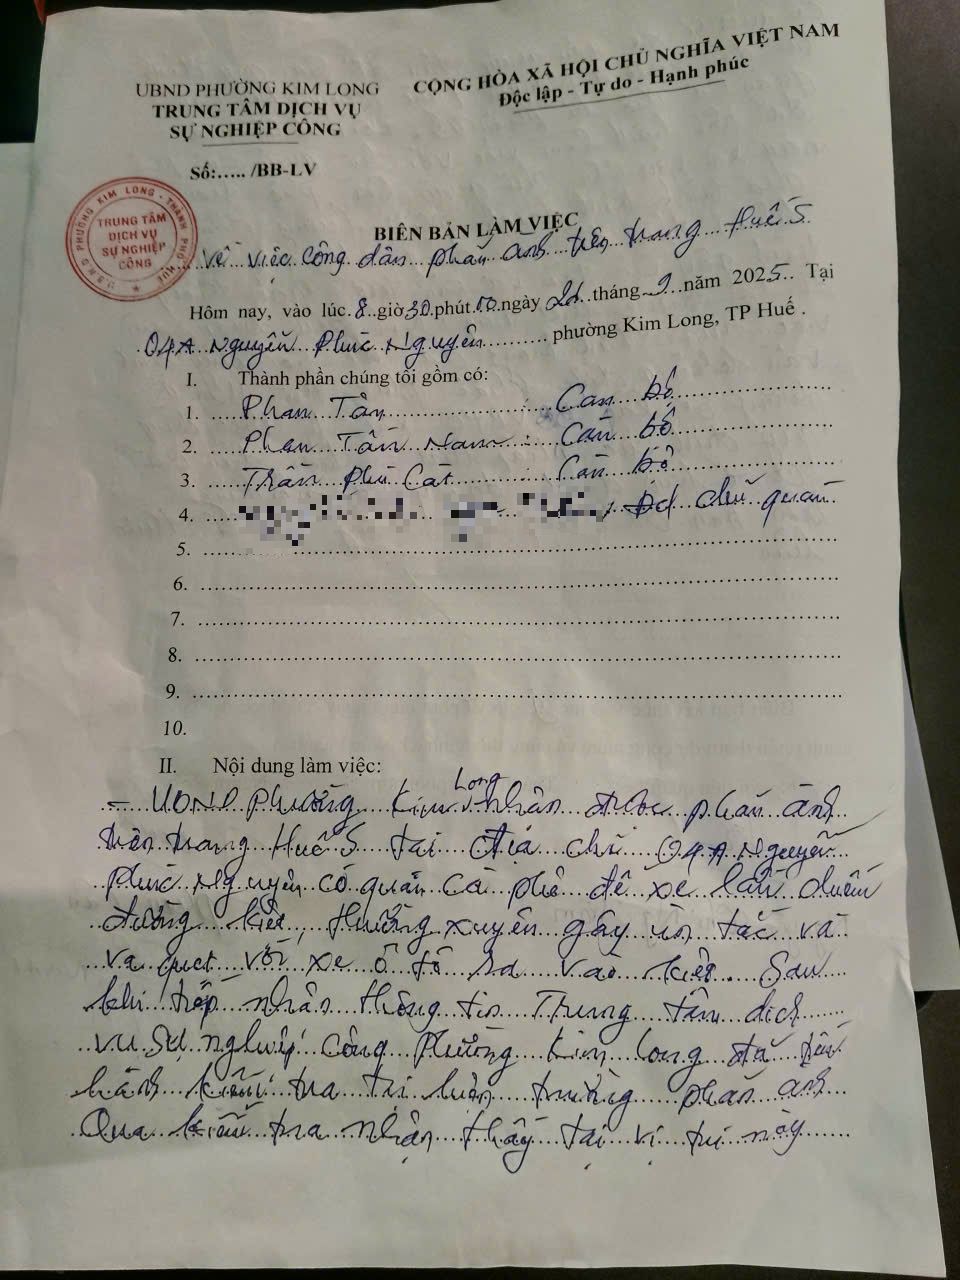 UBND PHƯỜNG KIM LONG
TRUNG TÂM DỊCH VỤ
SỰ NGHIỆP CÔNG
CỘNG HÒA XÃ HỘI CHỦ NGHĨA VIỆT NAM
Độc lập - Tự do - Hạnh phúc
Số:..... /BB-LV
U.B.N.D PHƯỜNG KIM LONG - THÀNH PHỐ HUẾ
TRUNG TÂM
DỊCH VỤ
SỰ NGHIỆP
CÔNG
BIÊN BẢN LÀM VIỆC
Về việc công dân phản ánh trên trang Huế S
Hôm nay, vào lúc 8 giờ 30 phút ngày 26 tháng 9 năm 2025 Tại
04A Nguyễn Phúc Nguyên phường Kim Long, TP Huế .
I. Thành phần chúng tôi gồm có:
1. Phan Tân : Cán bộ
2. Phan Tấn Nam : Cán bộ
3. Trần Phú Cát : Cán bộ
4. chủ quán
5.
6.
7.
8.
9.
10.
II. Nội dung làm việc:
- UBND Phường Kim Long nhận được phản ánh
trên trang Huế S tại địa chỉ 04A Nguyễn
Phúc Nguyên có quán cà phê để xe lấn chiếm
đường kiệt, thường xuyên gây ùn tắc và
va quẹt với xe ô tô ra vào kiệt. Sau
khi tiếp nhận thông tin Trung tâm dịch
vụ sự nghiệp công Phường Kim Long đã tiến
hành kiểm tra tại hiện trường phản ánh
Qua kiểm tra nhận thấy tại vị trí này